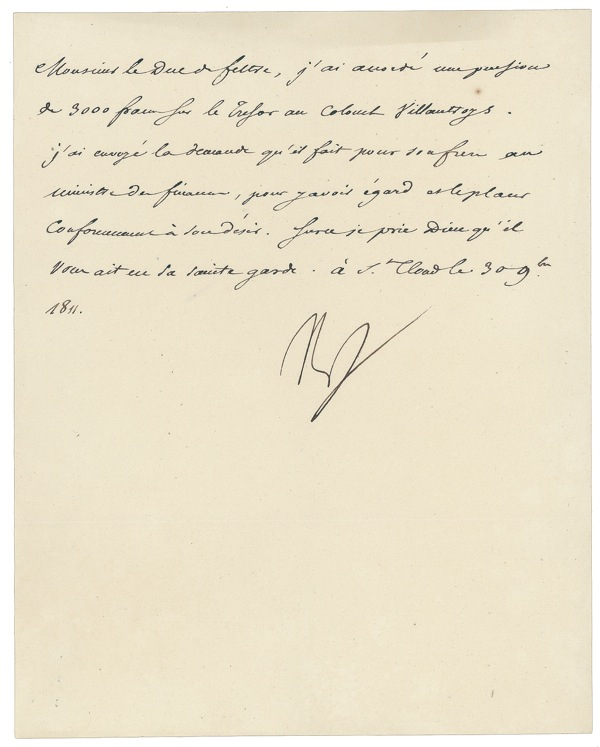 Monsieur le Duc de feltre, j'ai accordé une pension
de 3000 francs sur le Trésor au Colonel Villantroys.
j'ai envoyé la demande qu'il fait pour son frere au
ministre des finances, pour y avoir égard et le placer
Conformement à son désir. Sur ce je prie Dieu qu'il
Vous ait en sa sainte garde. à St. Cloud le 30 9bre
1811.